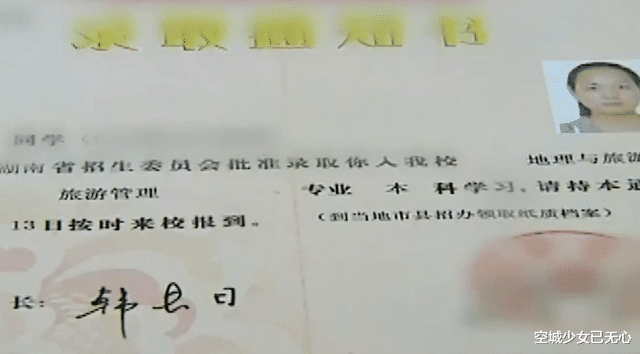 录取通知书
同学
湖南省招生委员会批准录取你入我校 地理与旅游
旅游管理 专业 本 科学习，请持本通
13日按时来校报到。 (到当地市县招办领取纸质档案)
长：
空城少女已无心